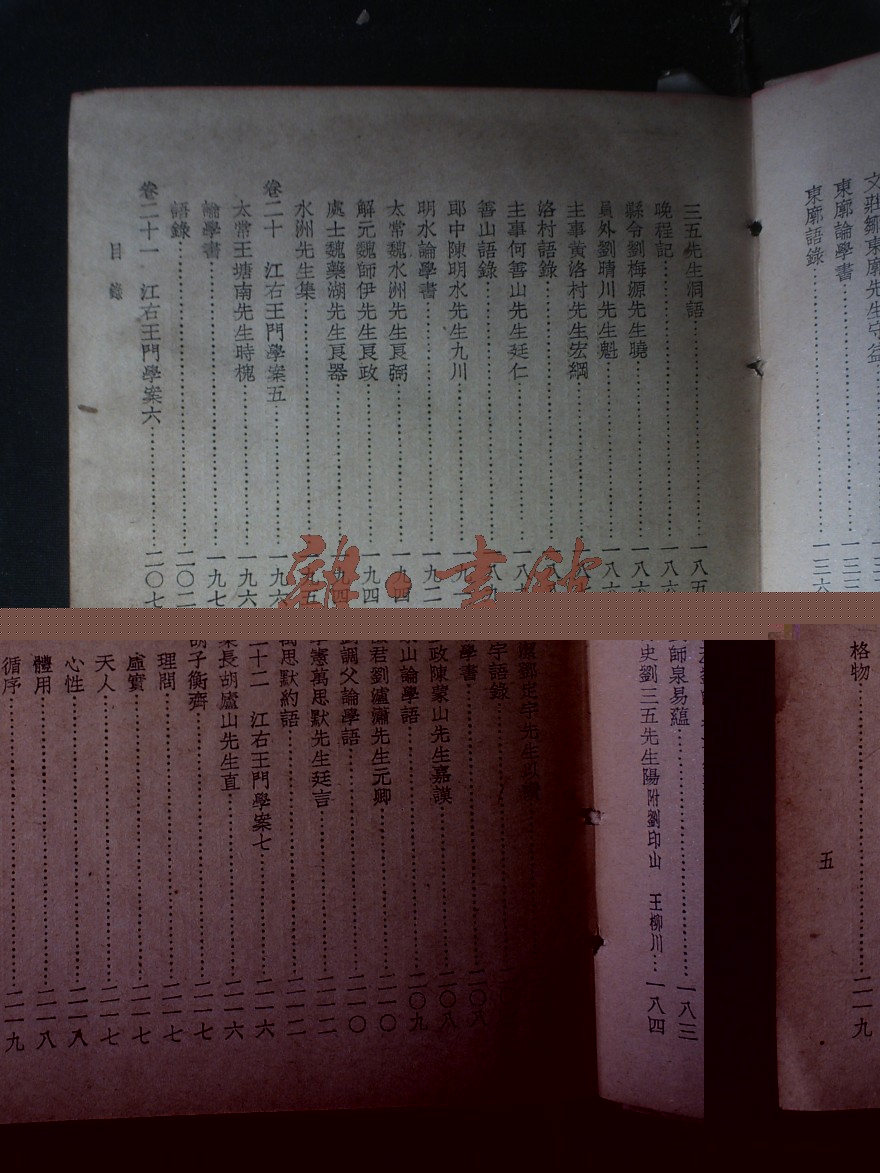 文莊鄒東廓先生守益
東廓論學書……一三
東廓語錄……一三六
三五先生洞語……一八五
晚程記……一八
縣令劉梅源先生曉……一八
員外劉晴川先生魁……一八
主事黃洛村先生宏綱
洛村語錄
主事何善山先生廷仁
善山語錄
郎中陳明水先生九川
明水論學書……一九二
太常魏水洲先生良弼……一九四
解元魏師伊先生良政……一九四
處士魏藥湖先生良器……一九四
水洲先生集……一九五
卷二十 江右王門學案五……一九六
太常王塘南先生時槐……一九六
論學書……一九七
語錄……二〇二
卷二十一 江右王門學案六……二〇七
目錄
師泉易蘊……一八三
史劉三五先生陽附劉印山 王柳川…一八四
宇語錄
學書……二〇八
政陳蒙山先生嘉謨……二〇八
山論學語……二〇九
君劉瀘瀟先生元卿……二一〇
調父論學語……二一〇
憲萬思默先生廷言……二一二
思默約語……二一二
二十二 江右王門學案七……二一六
長胡廬山先生直……二一六
胡子衡齊……二一七
理問……二一七
虛實……二一七
天人……二一七
心性……二一八
體用……二一八
循序……二一九
格物……二一九
五